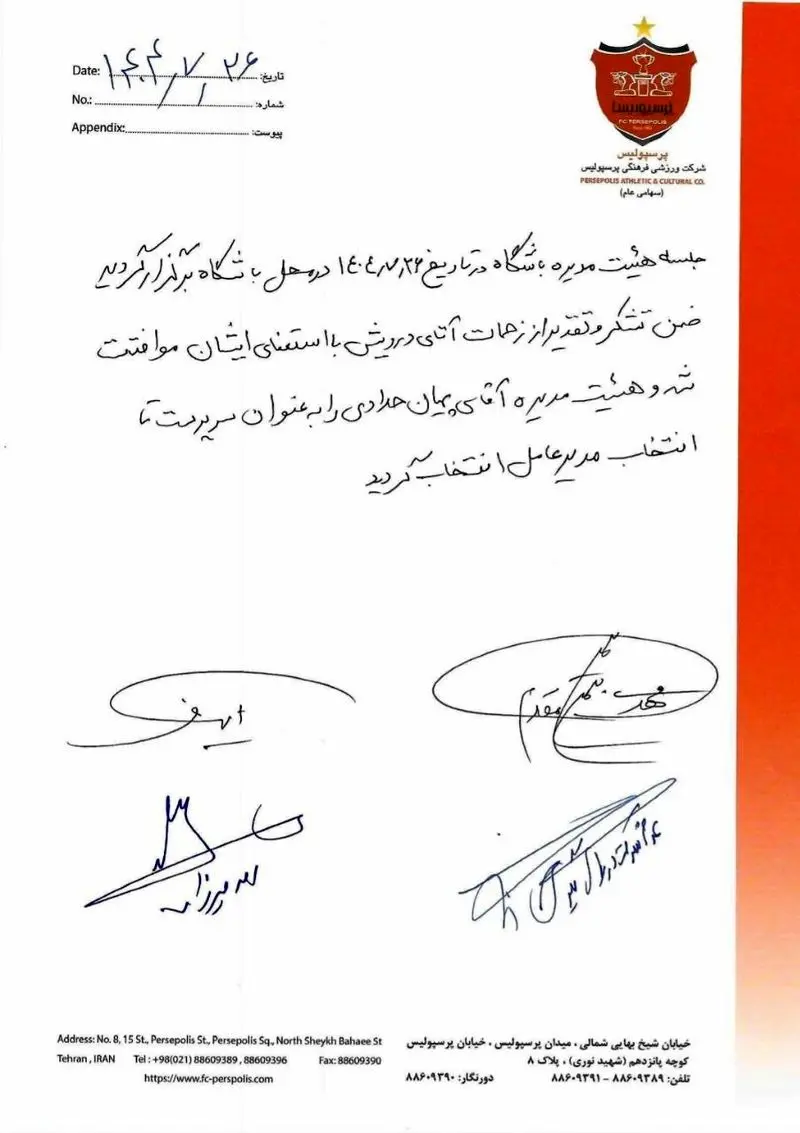 Date: ۱۴۰۴/۷/۲۶ تاریخ:
No.: شماره:
Appendix: پیوست:
پرسپولیس
FC PERSEPOLIS
پرسپولیس
شرکت ورزشی فرهنگی پرسپولیس
PERSEPOLIS ATHLETIC & CULTURAL CO.
(سهامی عام)
جلسه هیئت مدیره باشگاه در تاریخ ۱۴۰۴/۷/۲۶ در محل باشگاه برگزار گردید
ضمن تشکر و تقدیر از زحمات آقای درویش با استعفای ایشان موافقت
شد و هیئت مدیره آقای پیمان حدادی را به عنوان سرپرست تا
انتخاب مدیرعامل انتخاب گردید
Address: No. 8, 15 St., Persepolis St., Persepolis Sq., North Sheykh Bahaee St
Tehran , IRAN Tel : +98(021) 88609389 , 88609396 Fax: 88609390
https://www.fc-perspolis.com
خیابان شیخ بهایی شمالی ، میدان پرسپولیس ، خیابان پرسپولیس
کوچه پانزدهم (شهید نوری) ، پلاک ۸
تلفن: ۸۸۶۰۹۳۸۹ - ۸۸۶۰۹۳۹۱ دورنگار: ۸۸۶۰۹۳۹۰